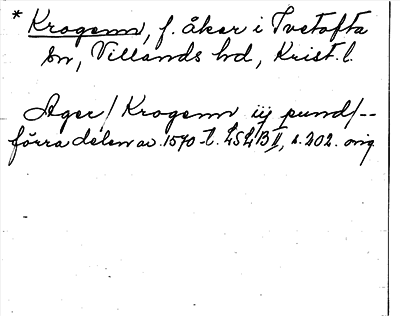 * Krogenn, f. åker i Tvetofta
sn, Villands hd, Krist. l.
Ager / Krogenn iij pund / --
förra delen av 1570-t. LSLB II, s. 202. orig